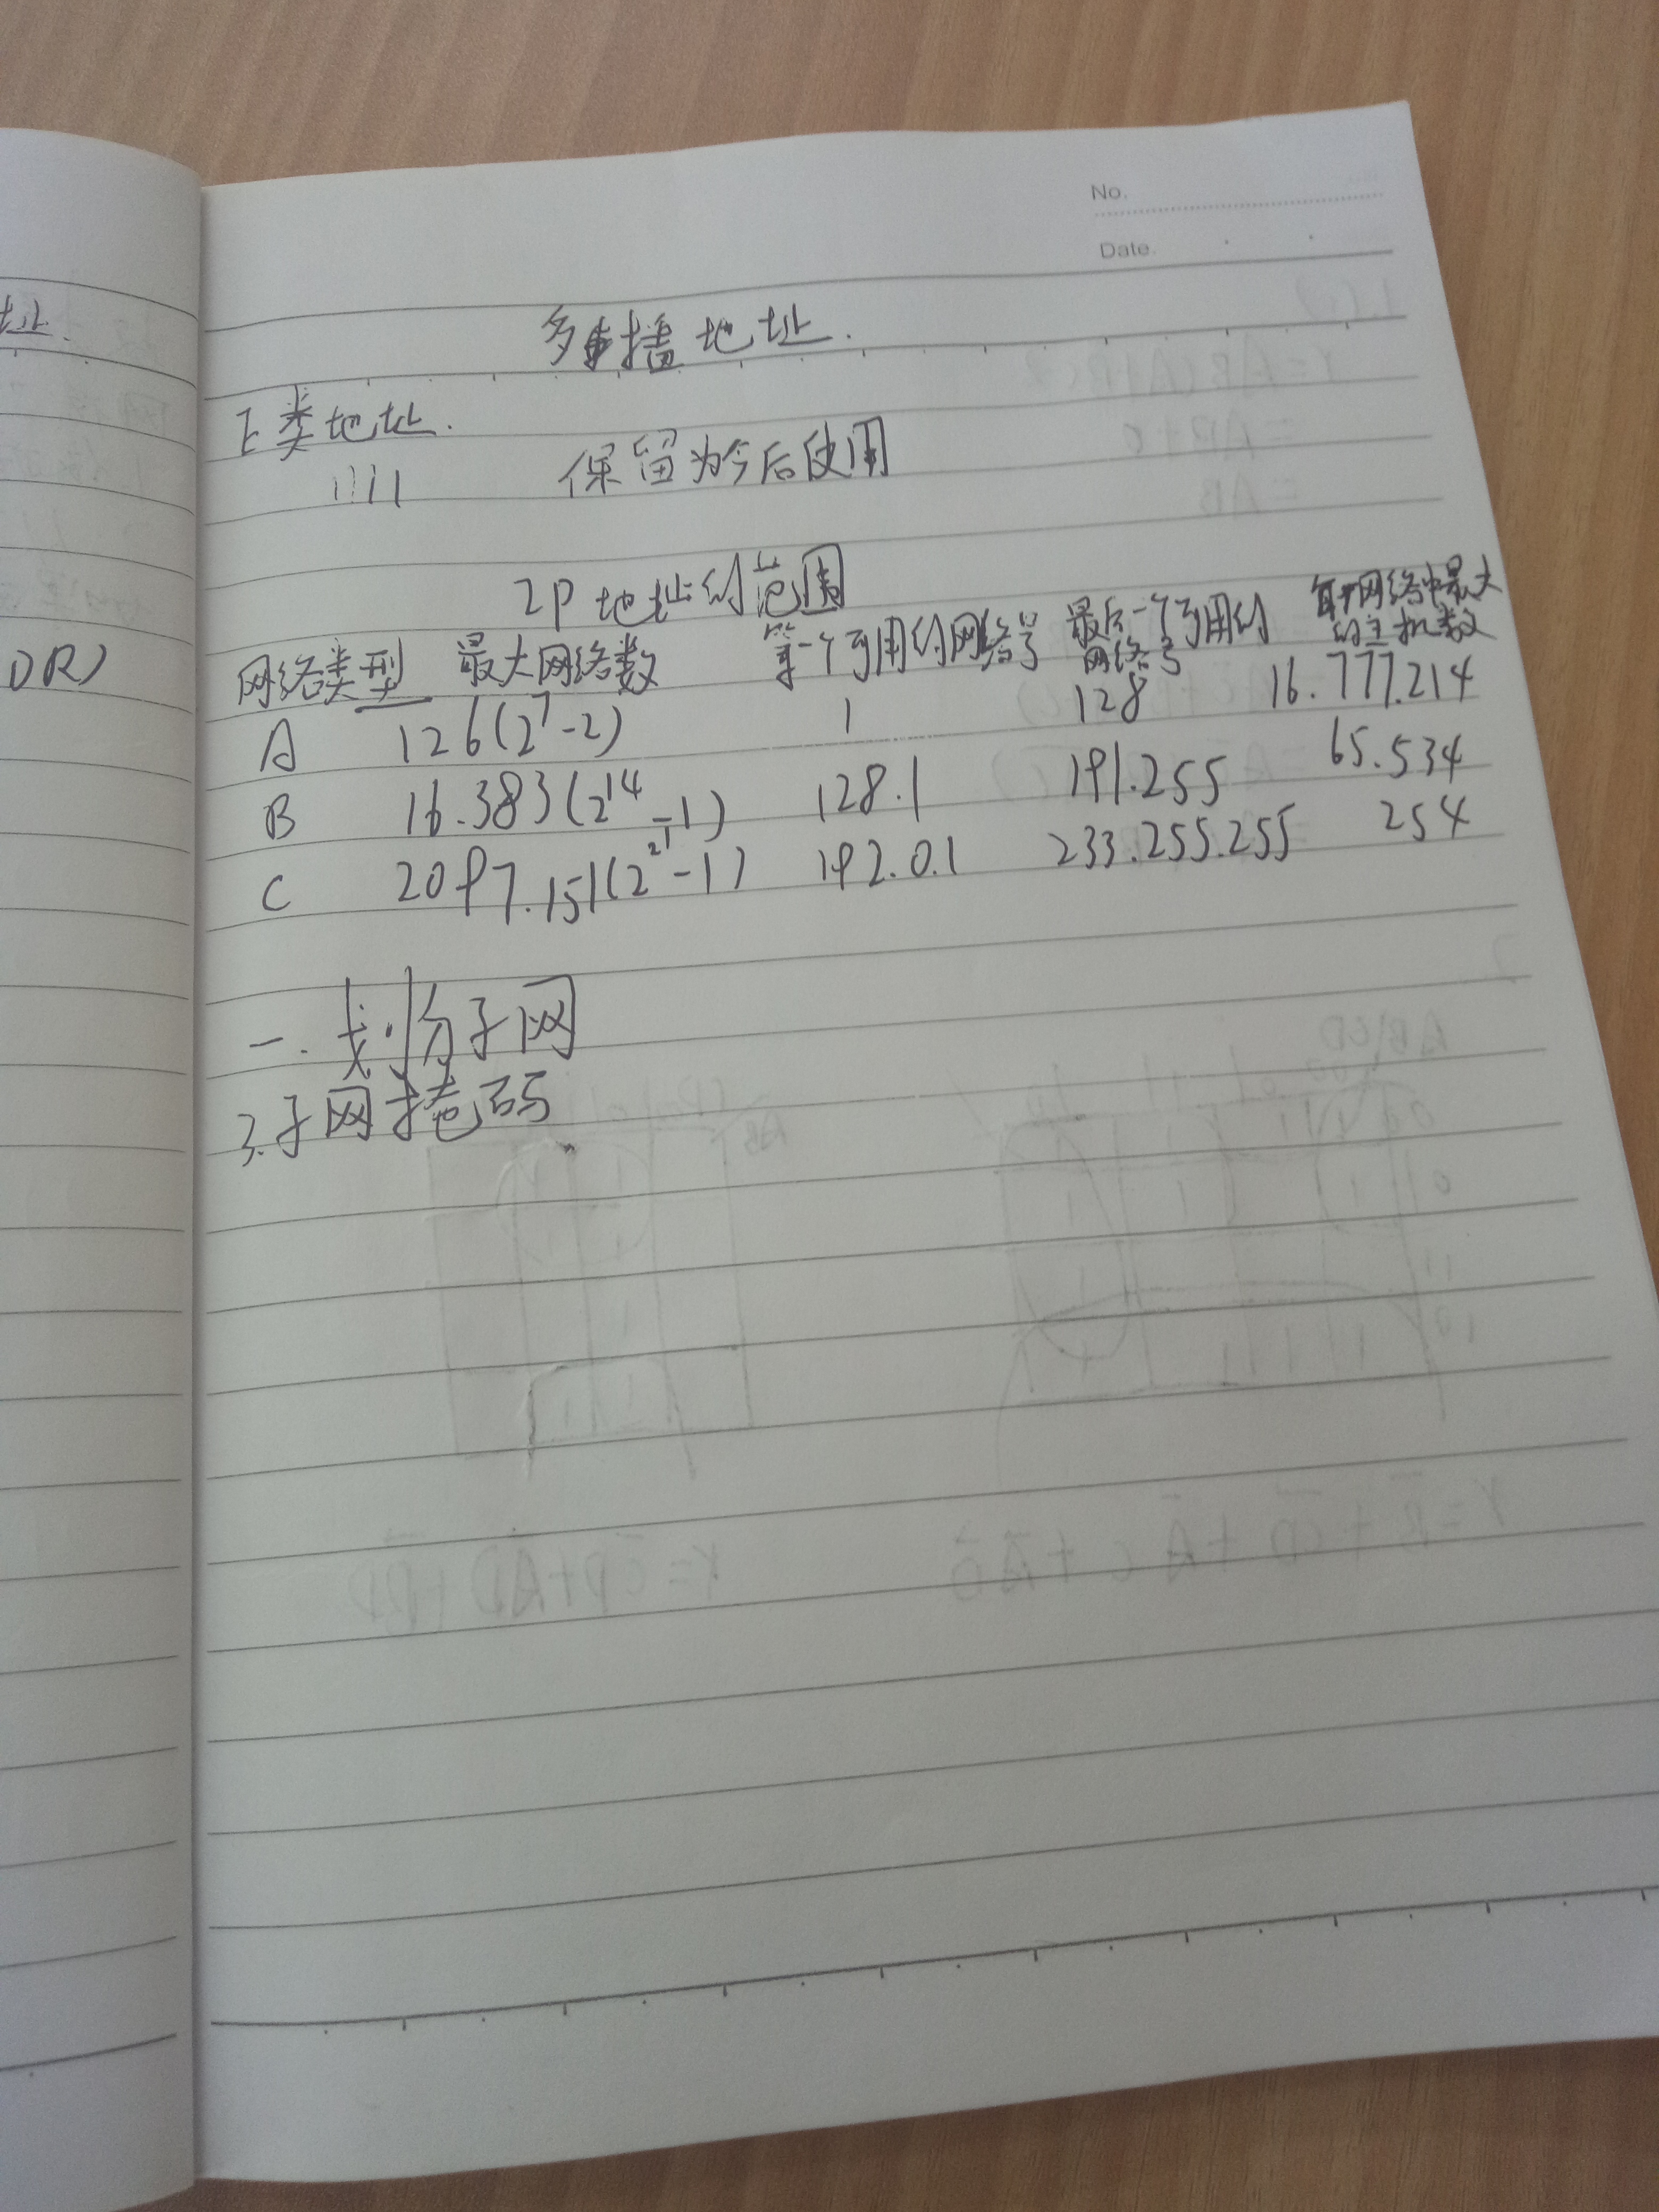 址.
DR)
No.
Date.
多播地址.
E类地址.
1111 保留为今后使用
IP地址的范围
网络类型 最大网络数 第一个可用的网络号 最后一个可用的网络号 每个网络中最大的主机数
A 126(2^7-2) 1 128 16.777.214
B 16.383(2^14-1) 128.1 191.255 65.534
C 2097.151(2^21-1) 192.0.1 233.255.255 254
一.划份子网
3.子网掩码